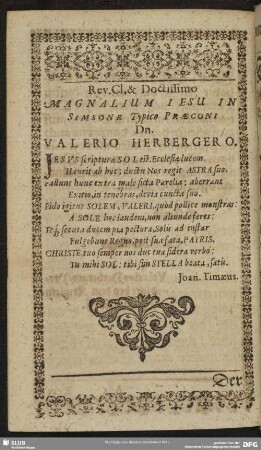 Rev. Cl. & Doctissimo
MAGNALIUM IESU IN
SIMSONE Typico PRÆCONI
Dn.
VALERIO HERBERGERO.
JESVS scripturæ SOL est. Ecclesia lucem
Haurit ab hoc; ductu Nos regit ASTRA suo.
Fallunt hunc extra male ficta Parelia; aberrant
Exitio, in tenebras, devia cuncta suo.
Fido igitur SOLEM, VALERI, quod pollice monstras:
A SOLE huic laudem, non aliunde feret:
secuta ducem pia pectora, Solis ad instar
Fulgebunt Regno, post sua fata, PATRIS.
CHRISTE, tuo semper nos duc tua sidera verbo:
Tu mihi SOL: tibi sim STELLA beata, sat
Joan. Timæus.
Der
SLUB
DFG